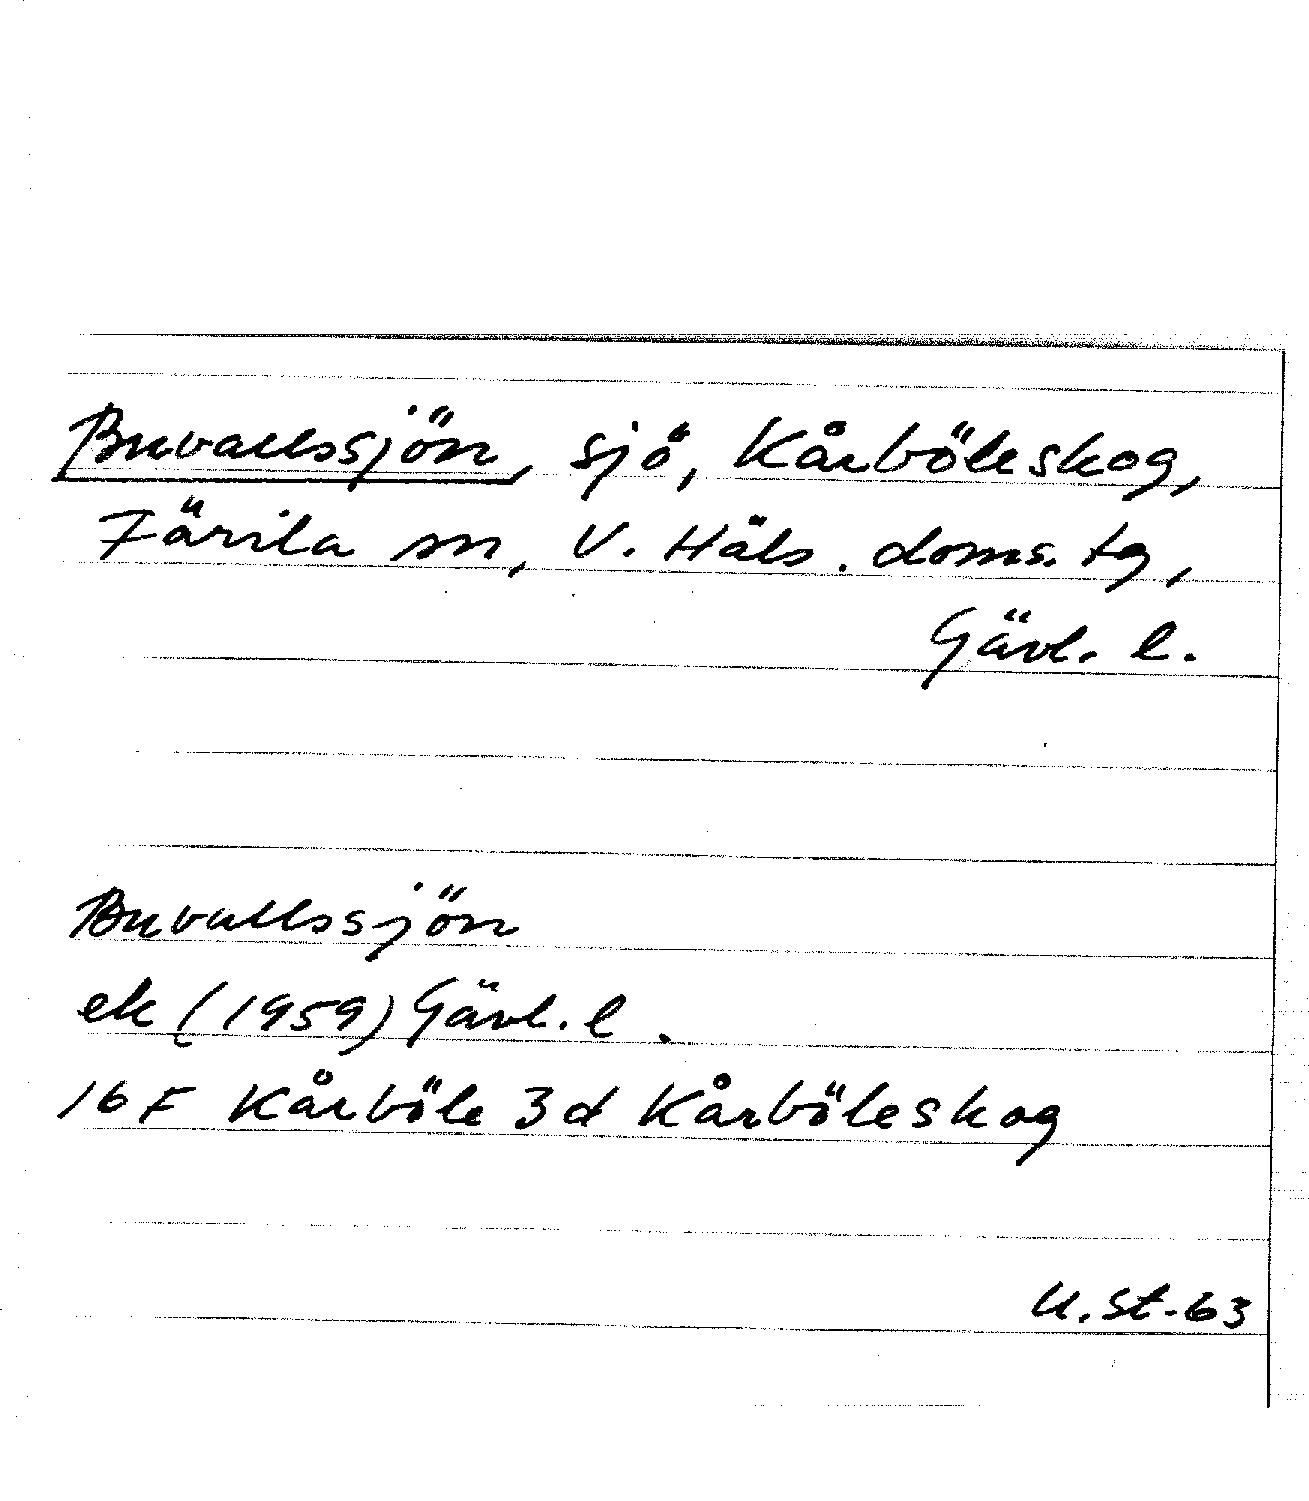 Buvallssjön, sjö, Kårböleskog,
Färila sn, V. Häls. doms. tg,
Gävl. l.
Buvallssjön
ek (1959) Gävl. l.
16 F Kårböle 3d Kårböleskog
U. St-63